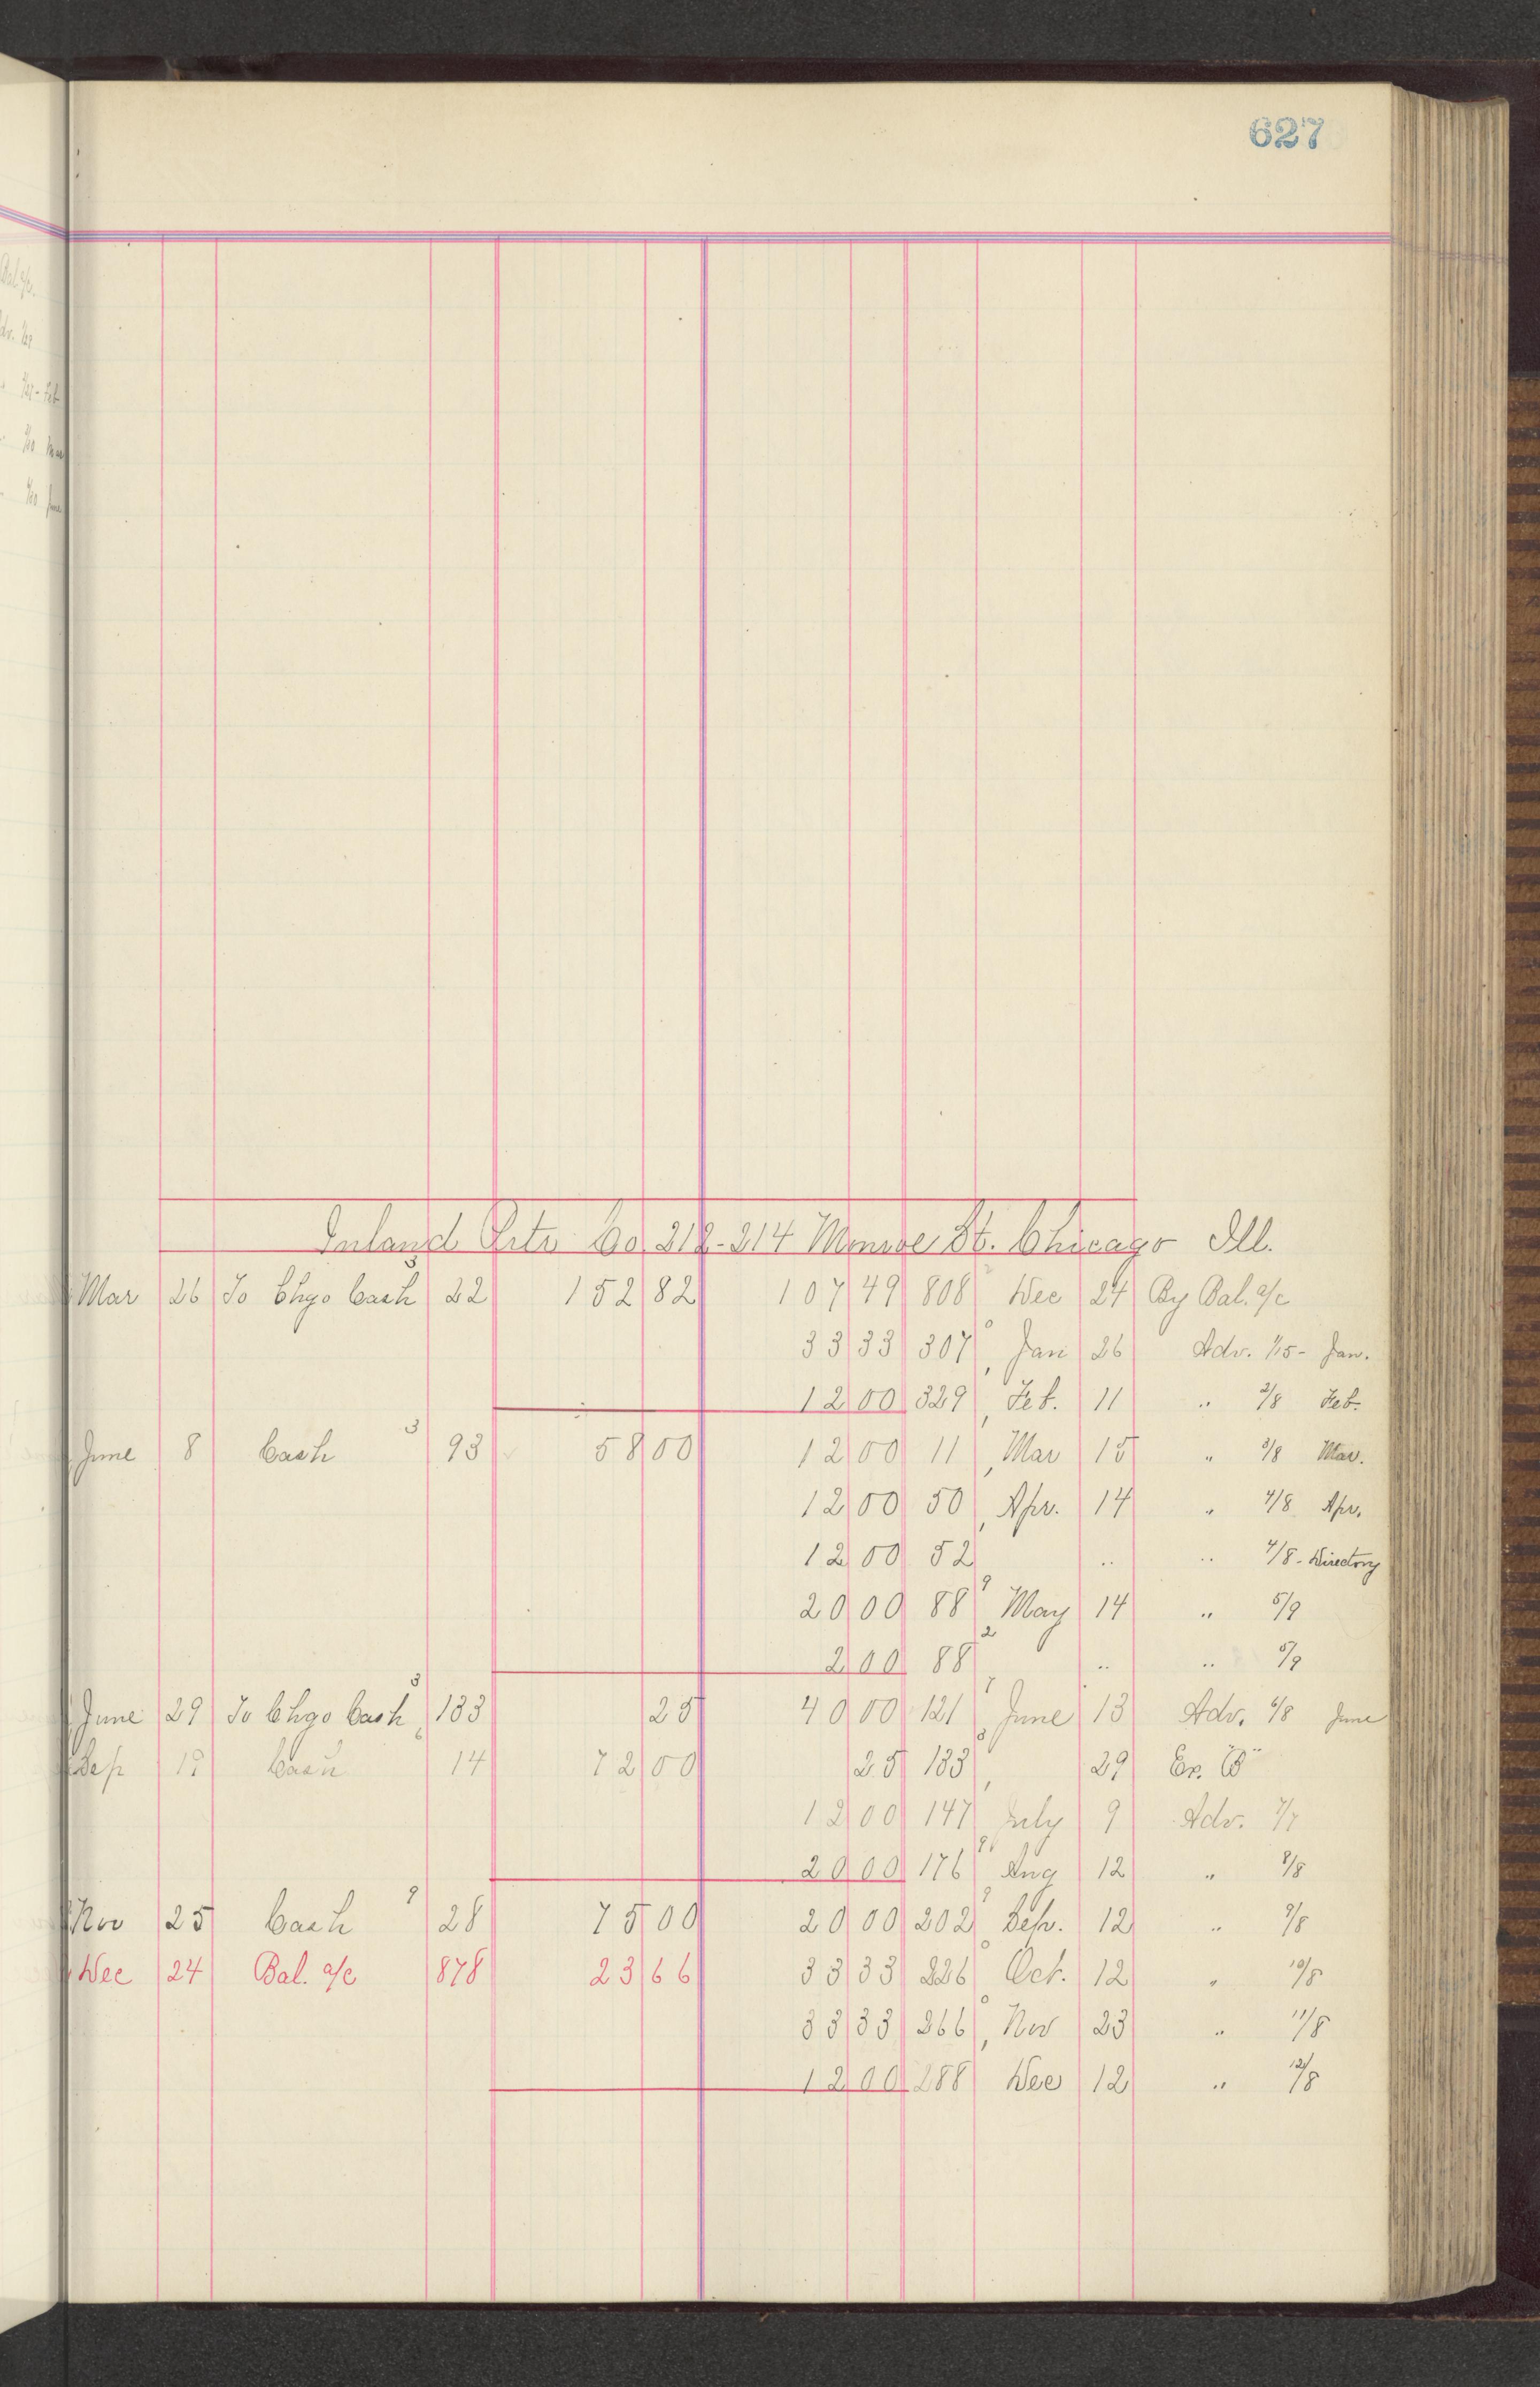 627
Inland Ptr Co 212-214 Monroe St. Chicago Ill.
Mar 26 To Chgo Cash 3 22 152 82 107 49 808 Dec 24 By Bal. a/c
33 33 307 Jan 26 Adv. 1/15 - Jan.
12 00 329 Feb. 11 " 2/8 Feb.
June 8 Cash 3 93 58 00 12 00 11 Mar 15 " 3/8 Mar.
12 00 50 Apr. 14 " 4/8 Apr.
12 00 52 " " 4/8 - Directory
20 00 88 9 May 14 " 5/9
2 00 88 2 " " 5/9
June 29 To Chgo Cash 3 133 25 40 00 121 7 June 13 Adv. 6/8 June
Sep 15 Cash 6 14 72 00 25 133 3 29 Ex. "B"
12 00 147 July 9 Adv. 7/7
20 00 176 9 Aug 12 " 8/8
Nov 25 Cash 9 28 75 00 20 00 202 9 Sep. 12 " 9/8
Dec 24 Bal. a/c 878 23 66 33 33 226 0 Oct. 12 " 10/8
33 33 266 0 Nov 23 " 11/8
12 00 288 Dec 12 " 12/8